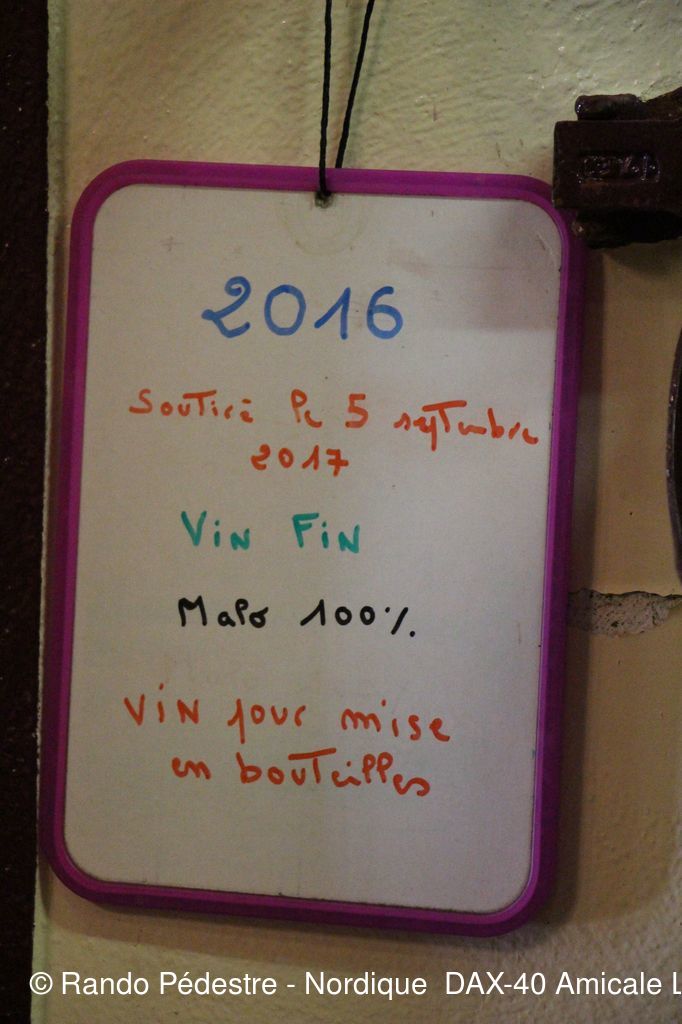 2016
Soutiré le 5 septembre
2017
Vin Fin
Malo 100%
Vin pour mise
en bouteilles
© Rando Pédestre - Nordique DAX-40 Amicale L